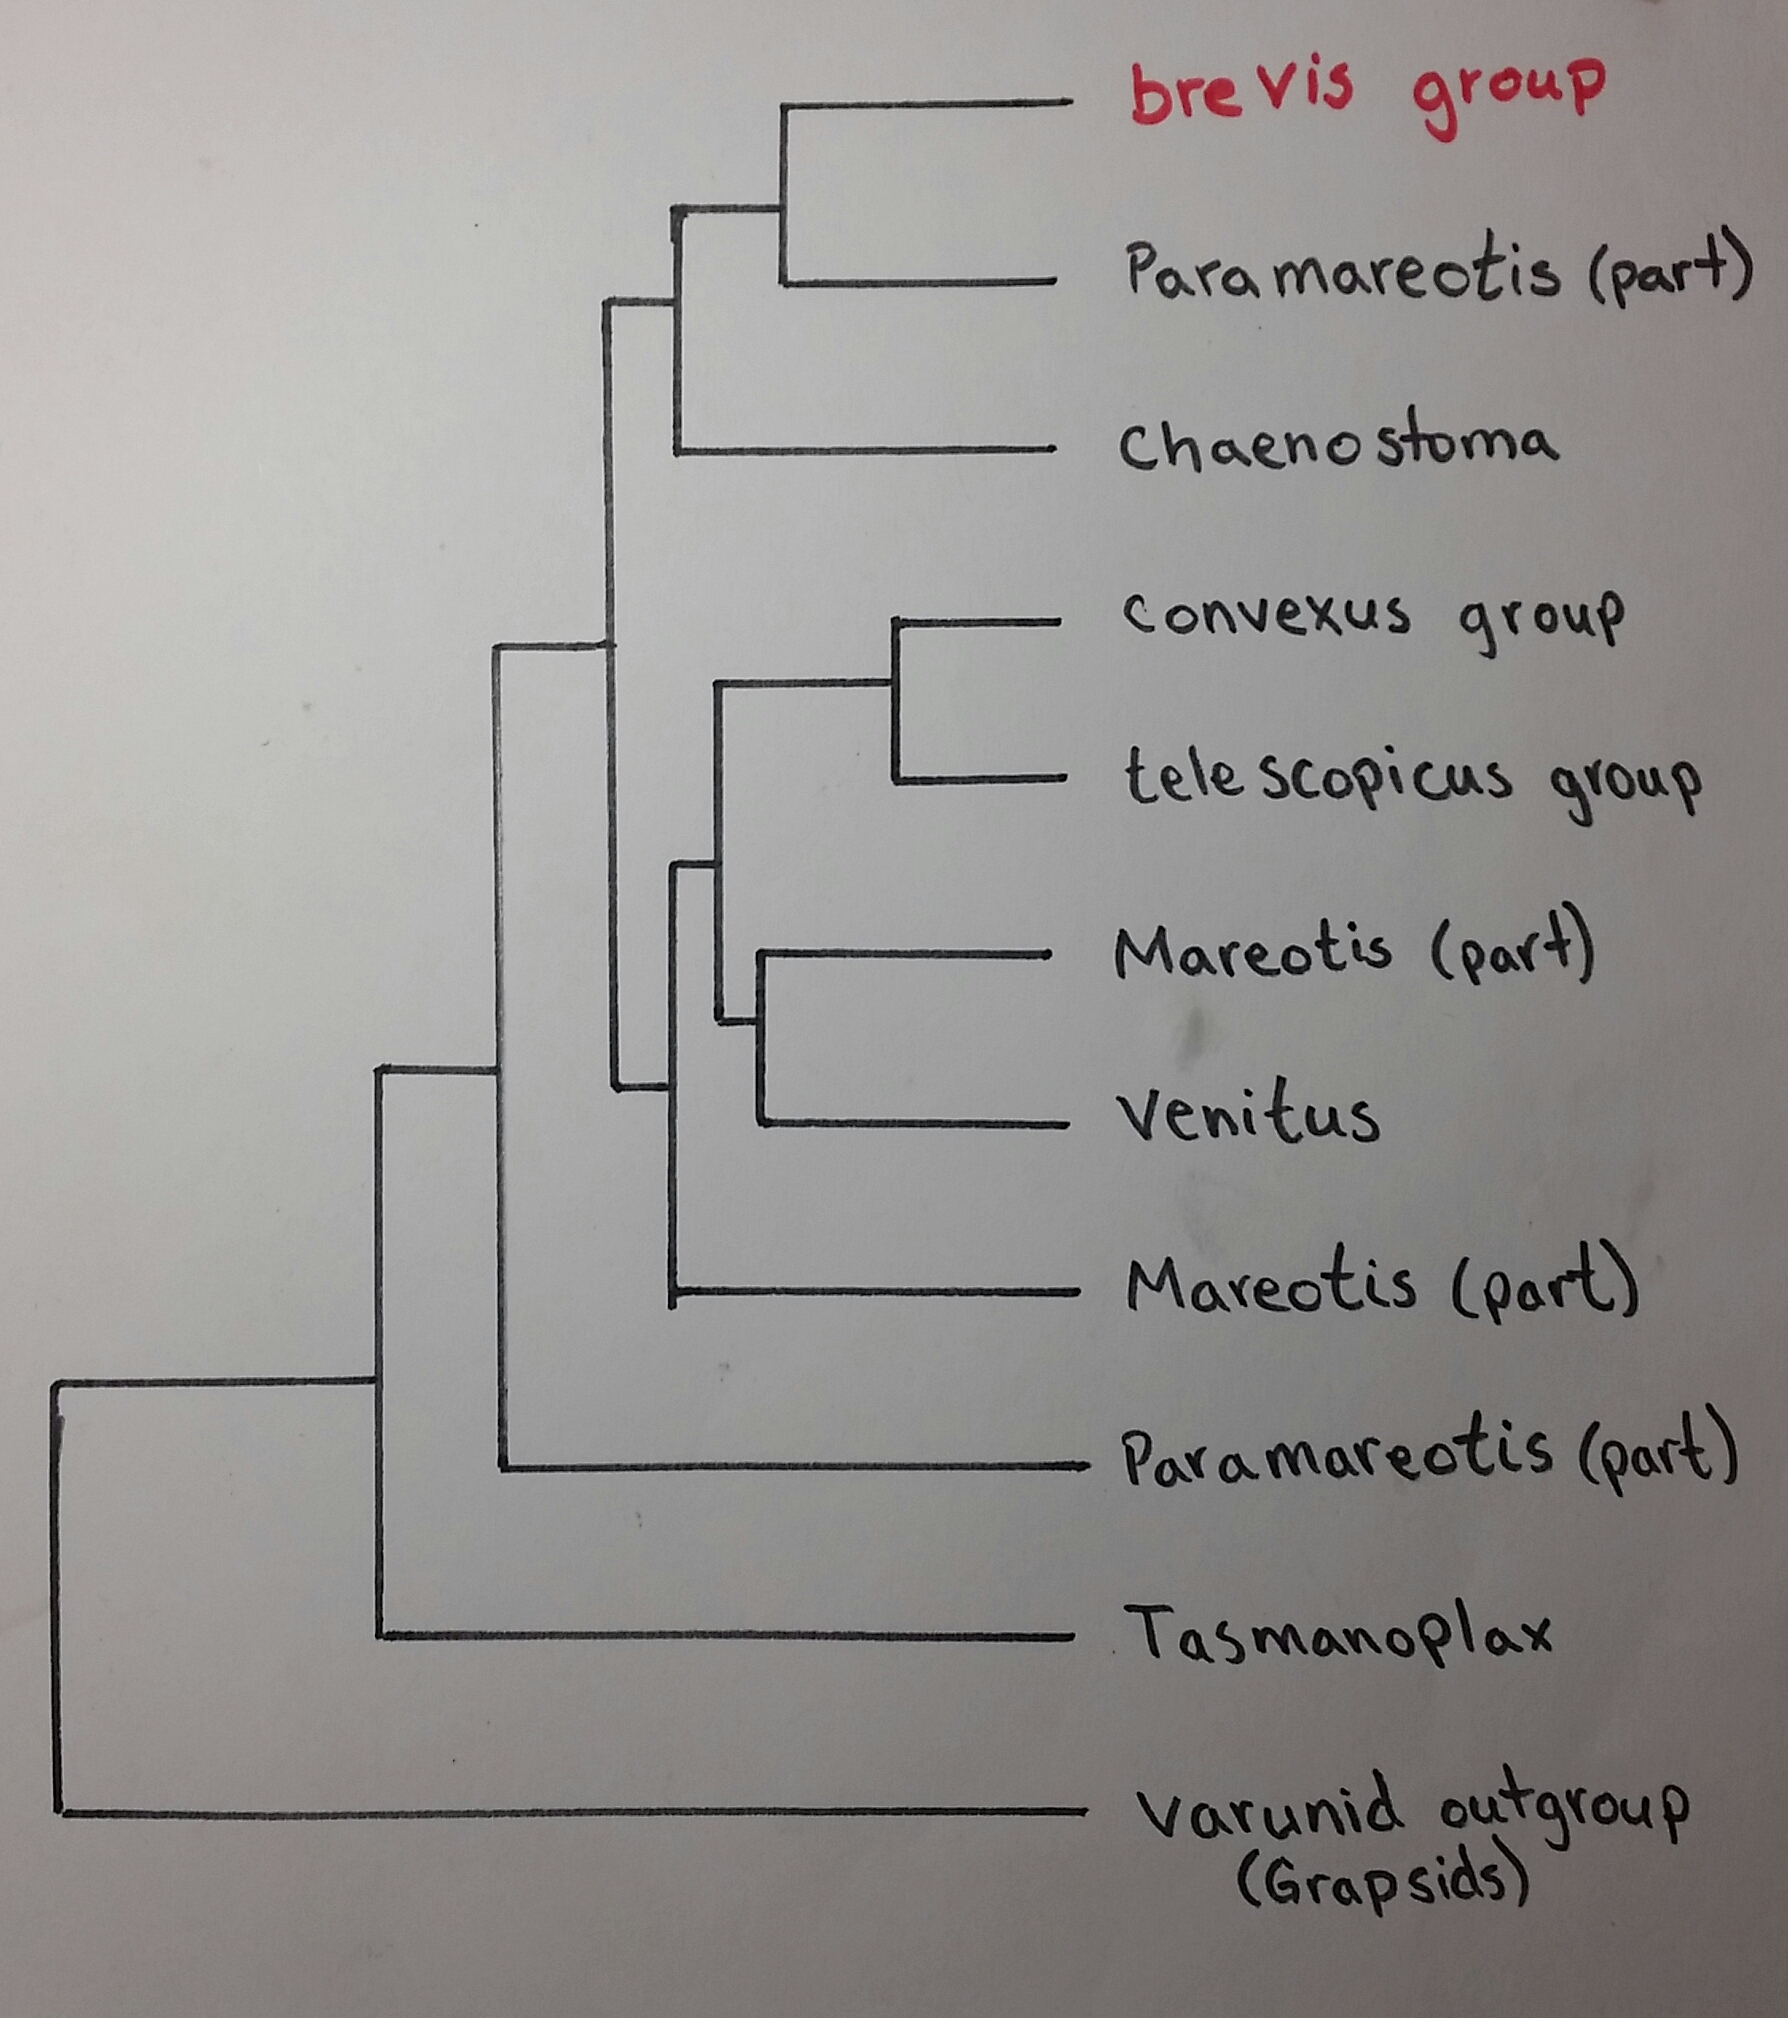 brevis group
Paramareotis (part)
Chaenostoma
convexus group
telescopicus group
Mareotis (part)
Venitus
Mareotis (part)
Paramareotis (part)
Tasmanoplax
Varunid outgroup
(Grapsids)